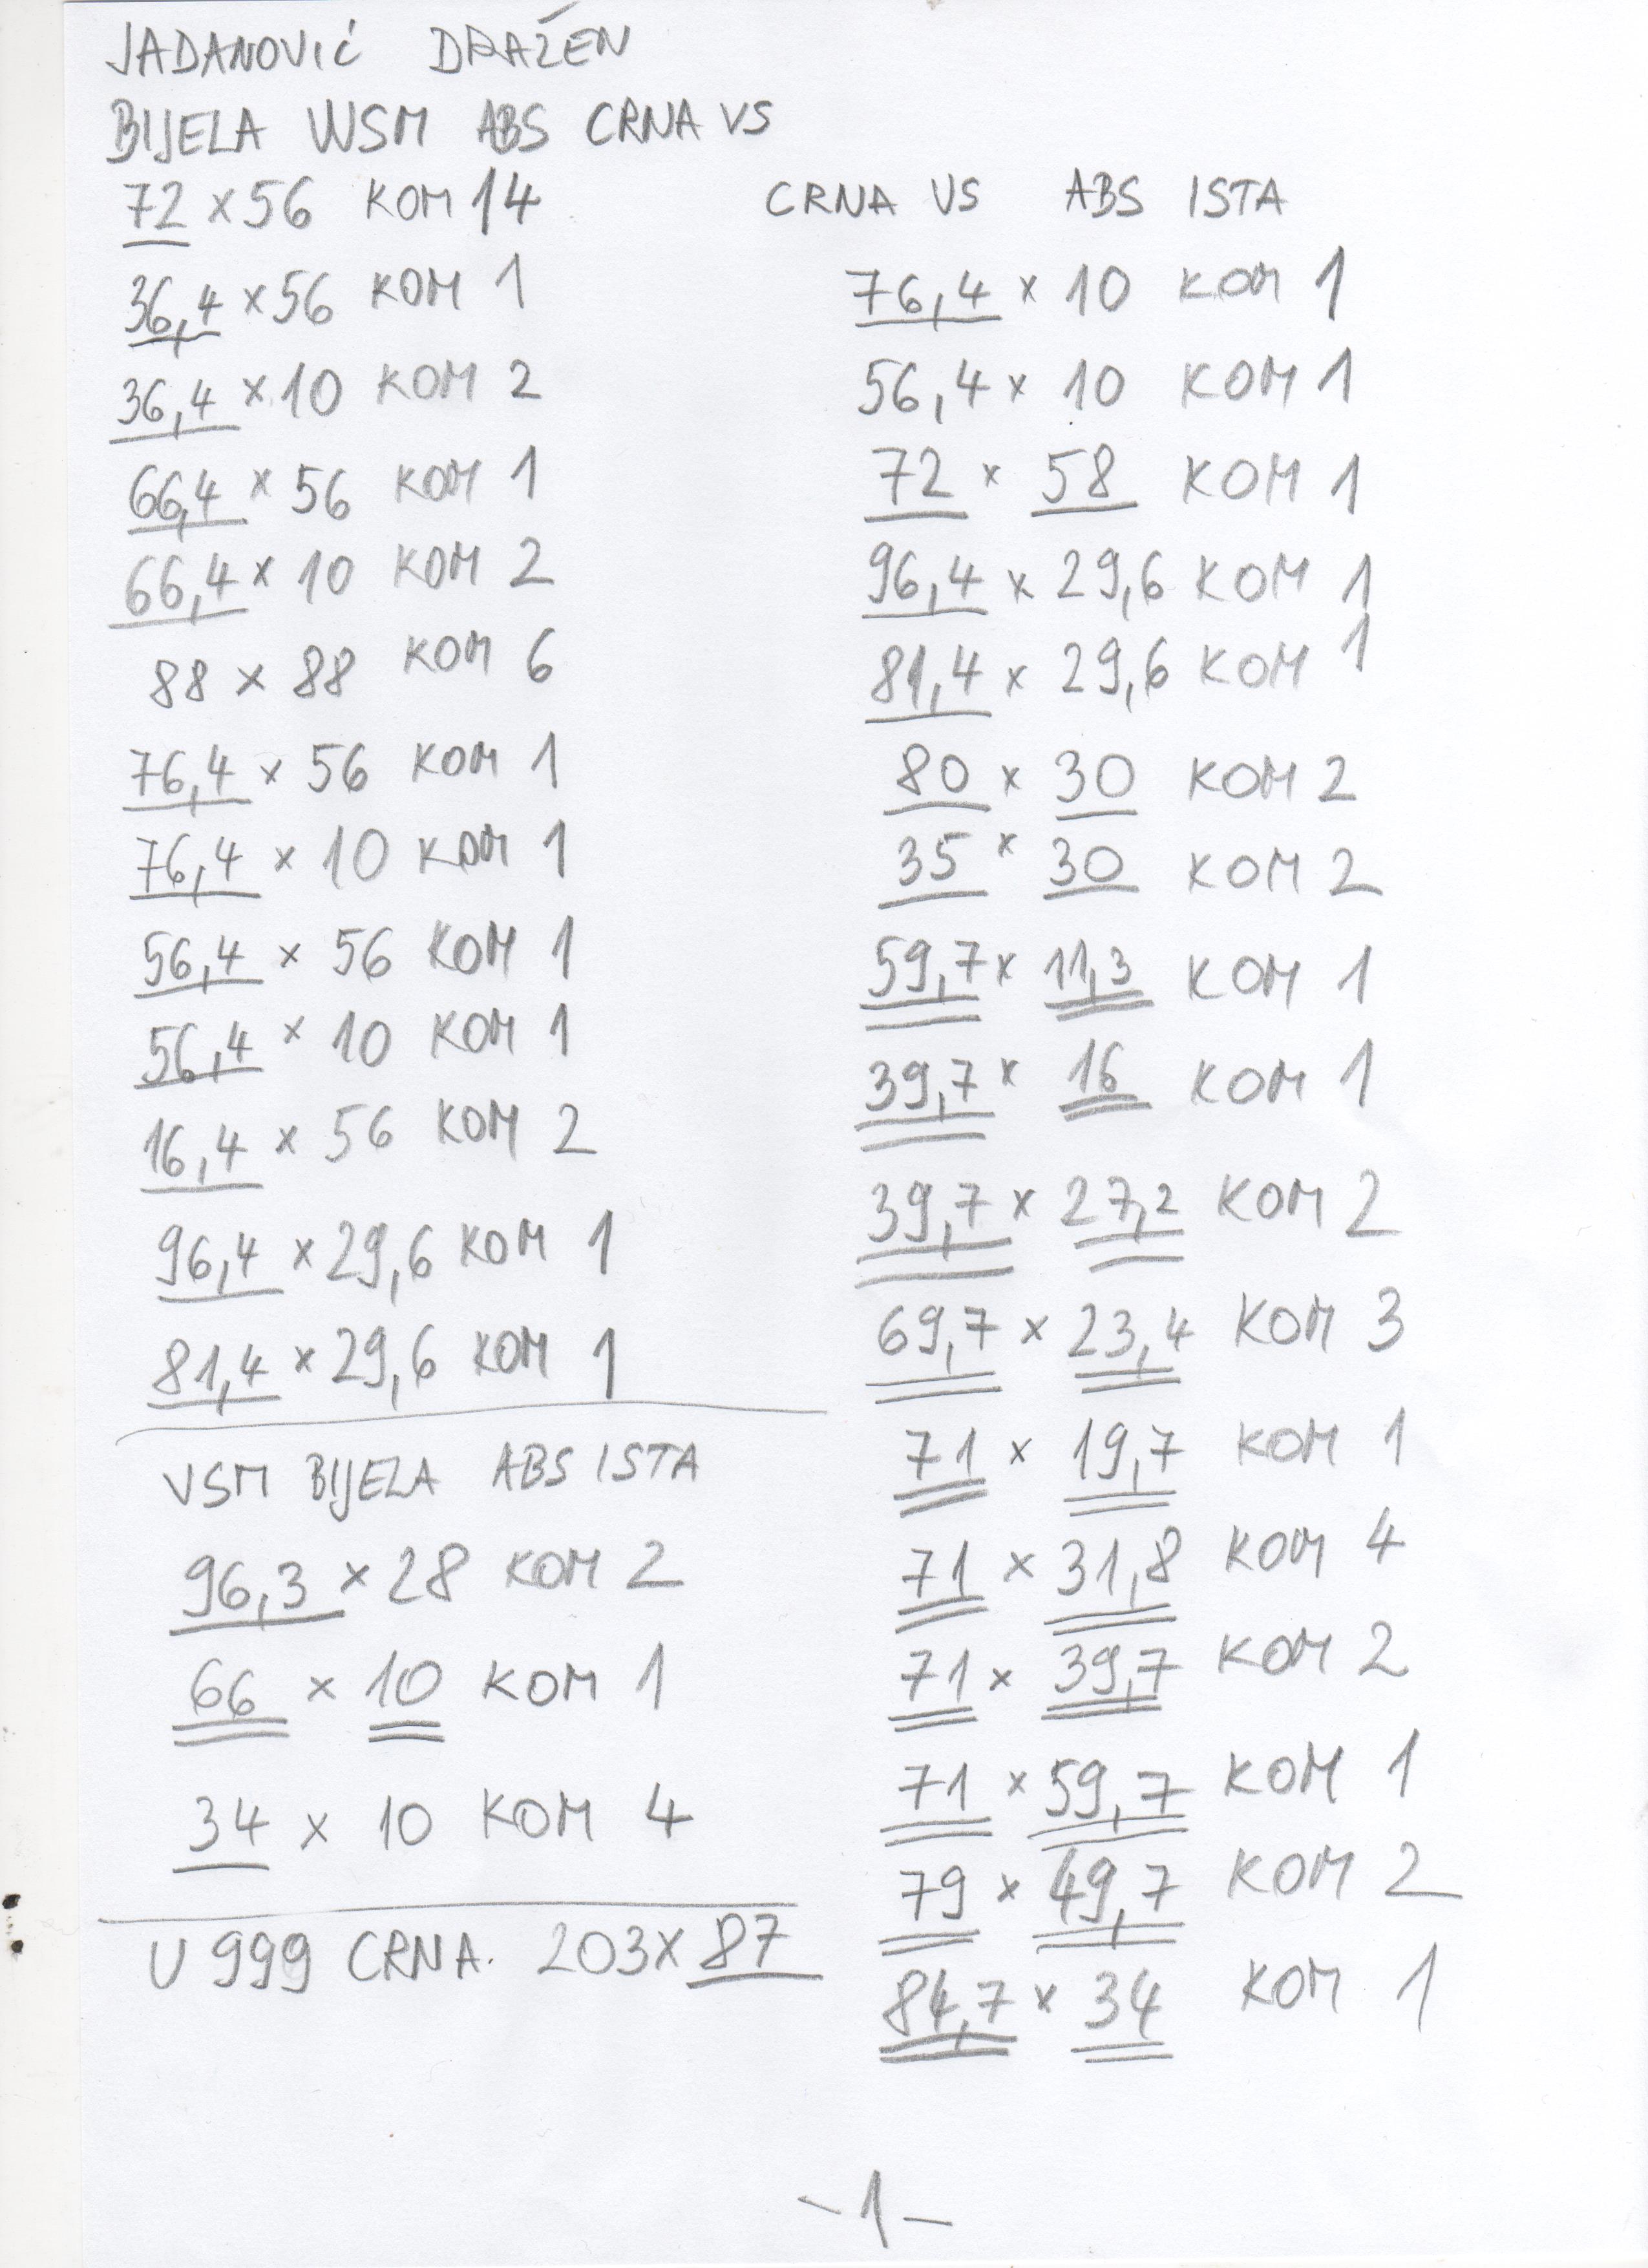 JADANOVIĆ DRAŽEN
BIJELA WSM ABS CRNA VS
72 x 56 KOM 14
36,4 x 56 KOM 1
36,4 x 10 KOM 2
66,4 x 56 KOM 1
66,4 x 10 KOM 2
88 x 88 KOM 6
76,4 x 56 KOM 1
76,4 x 10 KOM 1
56,4 x 56 KOM 1
56,4 x 10 KOM 1
16,4 x 56 KOM 2
96,4 x 29,6 KOM 1
81,4 x 29,6 KOM 1
VSM BIJELA ABS ISTA
96,3 x 28 KOM 2
66 x 10 KOM 1
34 x 10 KOM 4
U 999 CRNA. 203 x 87
CRNA VS ABS ISTA
76,4 x 10 KOM 1
56,4 x 10 KOM 1
72 x 58 KOM 1
96,4 x 29,6 KOM 1
81,4 x 29,6 KOM 1
80 x 30 KOM 2
35 x 30 KOM 2
59,7 x 11,3 KOM 1
39,7 x 16 KOM 1
39,7 x 27,2 KOM 2
69,7 x 23,4 KOM 3
71 x 19,7 KOM 1
71 x 31,8 KOM 4
71 x 39,7 KOM 2
71 x 59,7 KOM 1
79 x 49,7 KOM 2
84,7 x 34 KOM 1
-1-